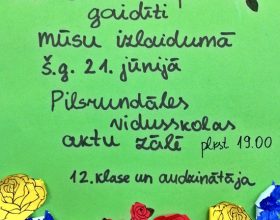 gaidīti
mūsu izlaidumā
š.g. 21. jūnijā
Pilsrundāles
vidusskolas
aktu zālē plkst 19.00
12. klase un audzinātāja